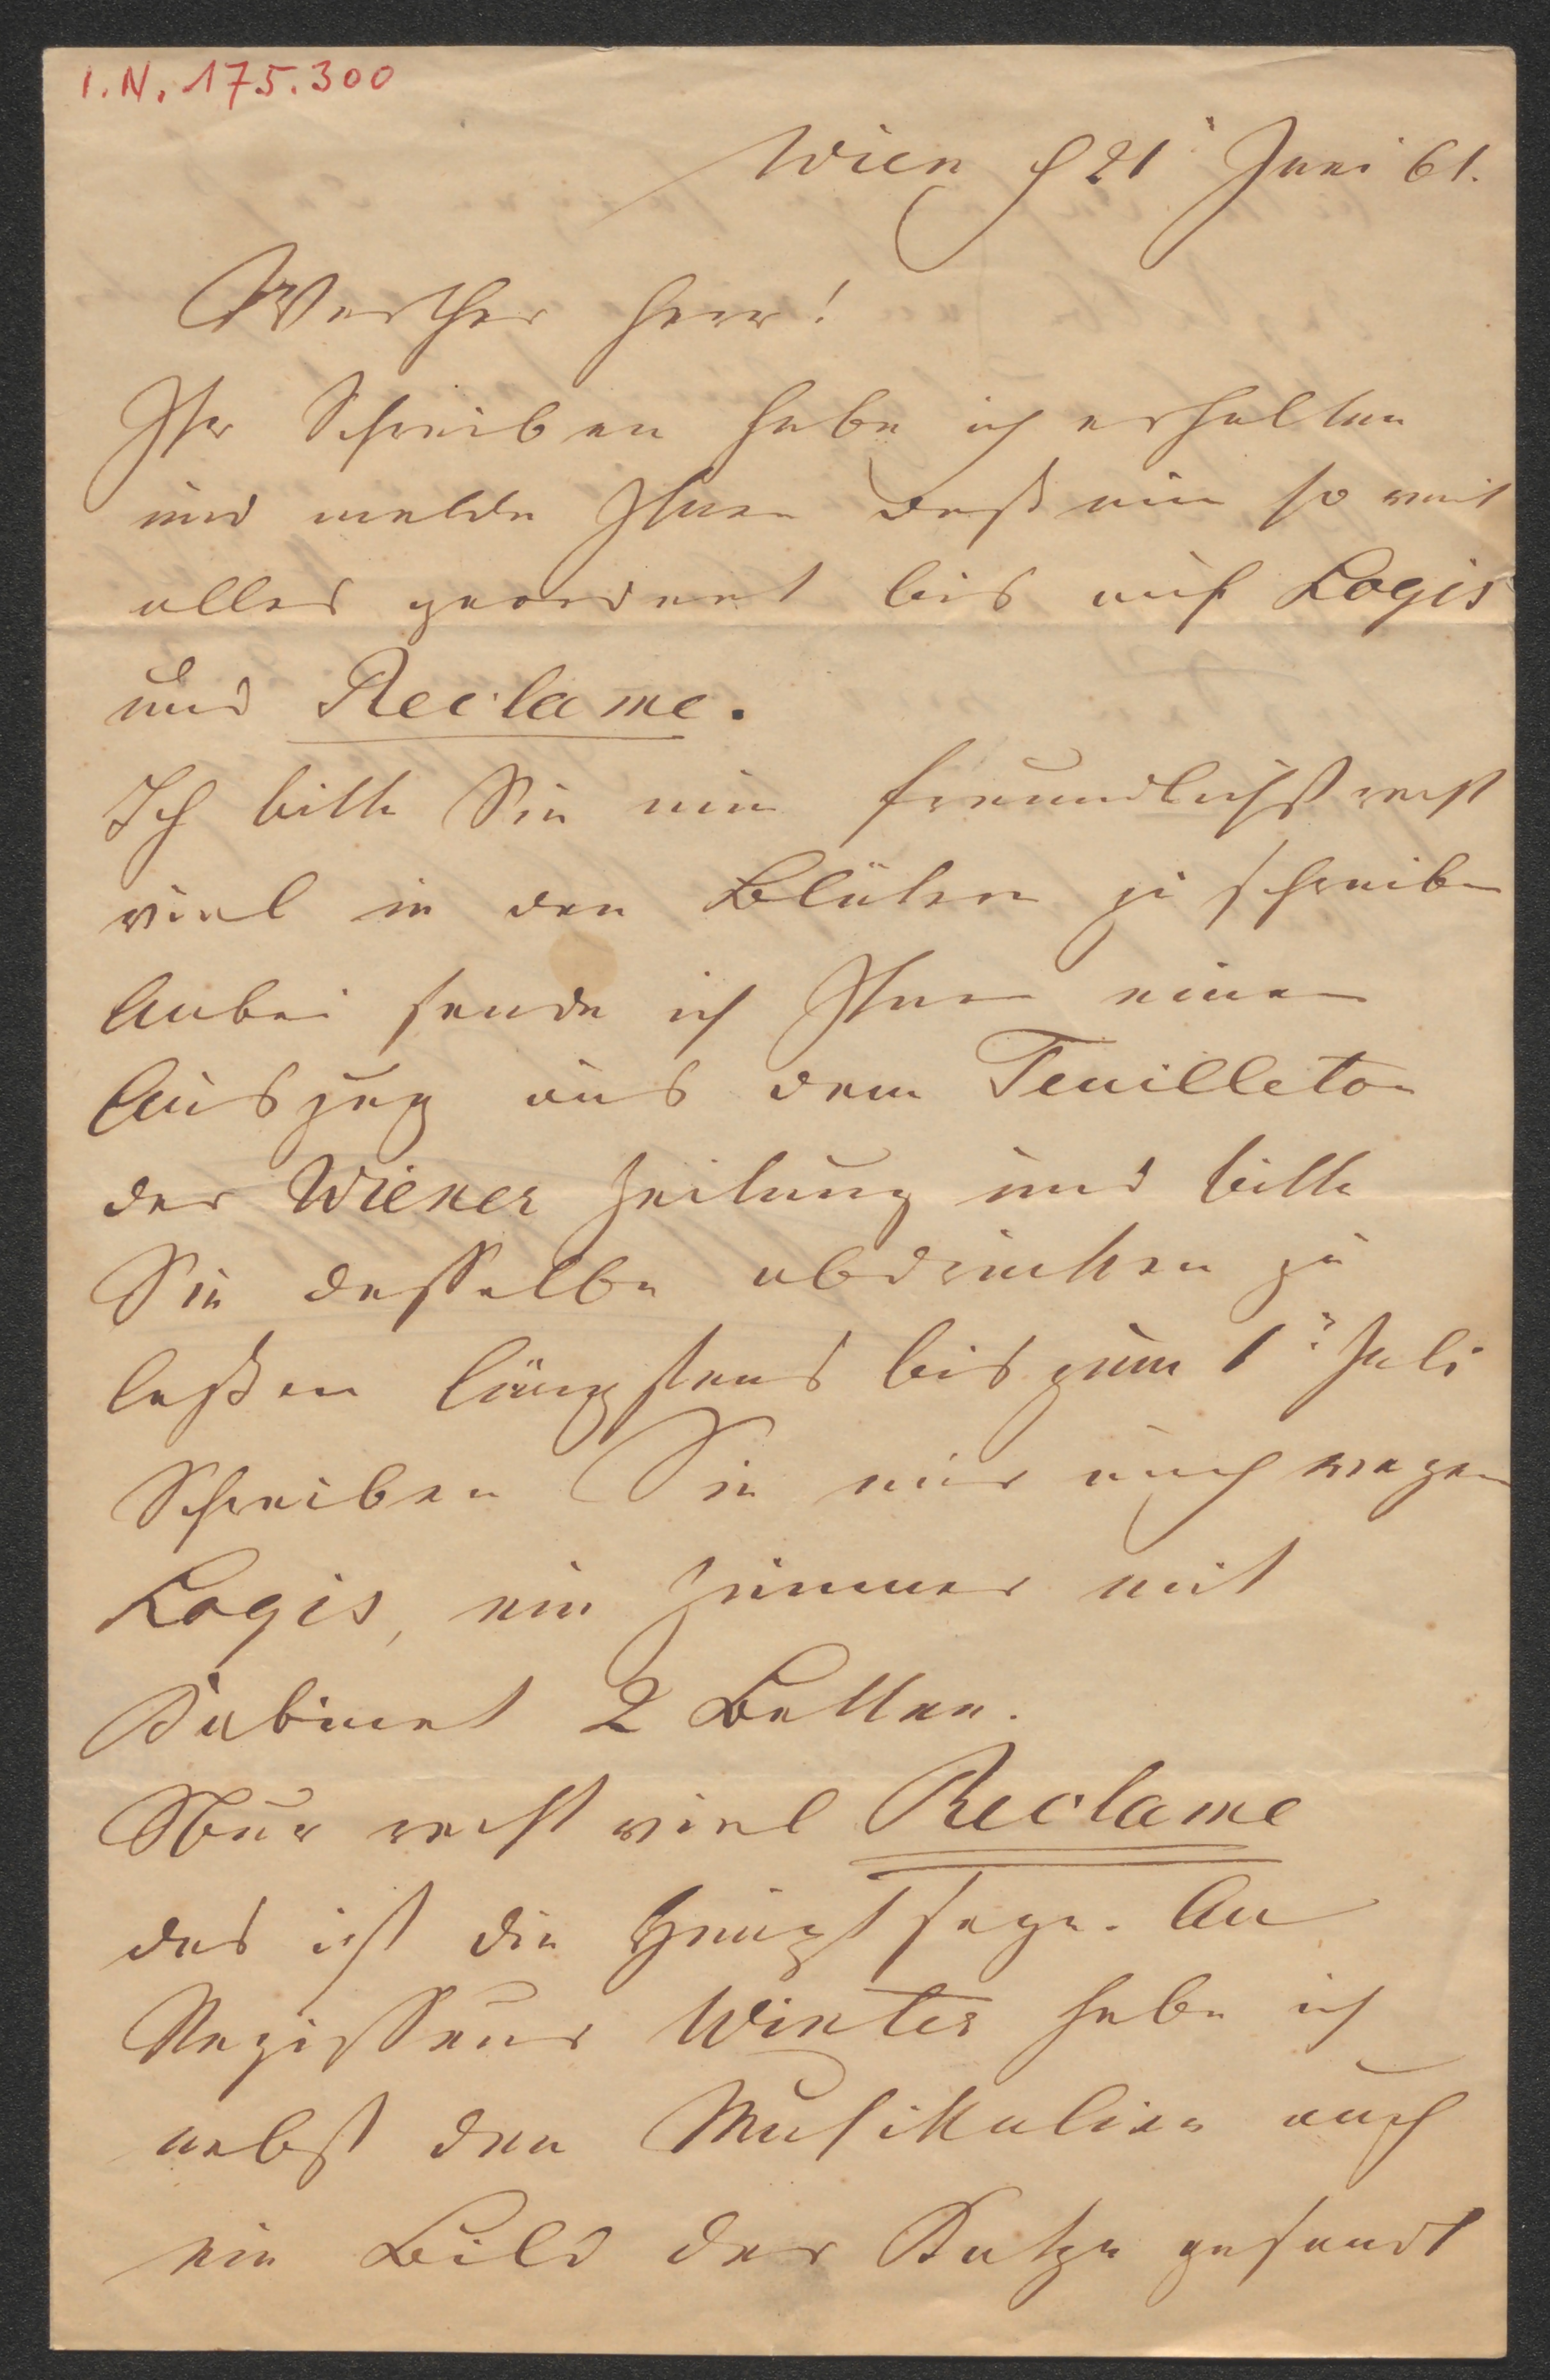 I.N. 175.300
Wien d 21t Juni 61.
Werther Herr!
Ihr Schreiben habe ich erhalten
und melde Ihnen daß nun so weit
alles geordnet bis auf Logis
und Reclame.
Ich bitte Sie nun freundlichst recht
viel in den Blätern zu schreiben
Anbei sende ich Ihnen einen
Auszug aus dem Feuilleton
der Wiener Zeitung und bitte
Sie desselbe abdrucken zu
laßen längstens bis zum 1t Juli
Schreiben Sie mir auch wegen
Logis, ein Zimmer mit
Kabinet 2 Betten.
Nur recht viel Reclame
das ist die Hauptsage. An
Regisseur Winter habe ich
nebst den Musikalien auch
ein Bild der Katze gesandt